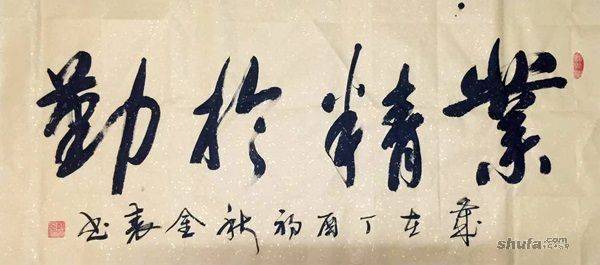 業精於勤
歲在丁酉初秋金袁书
shufa.com